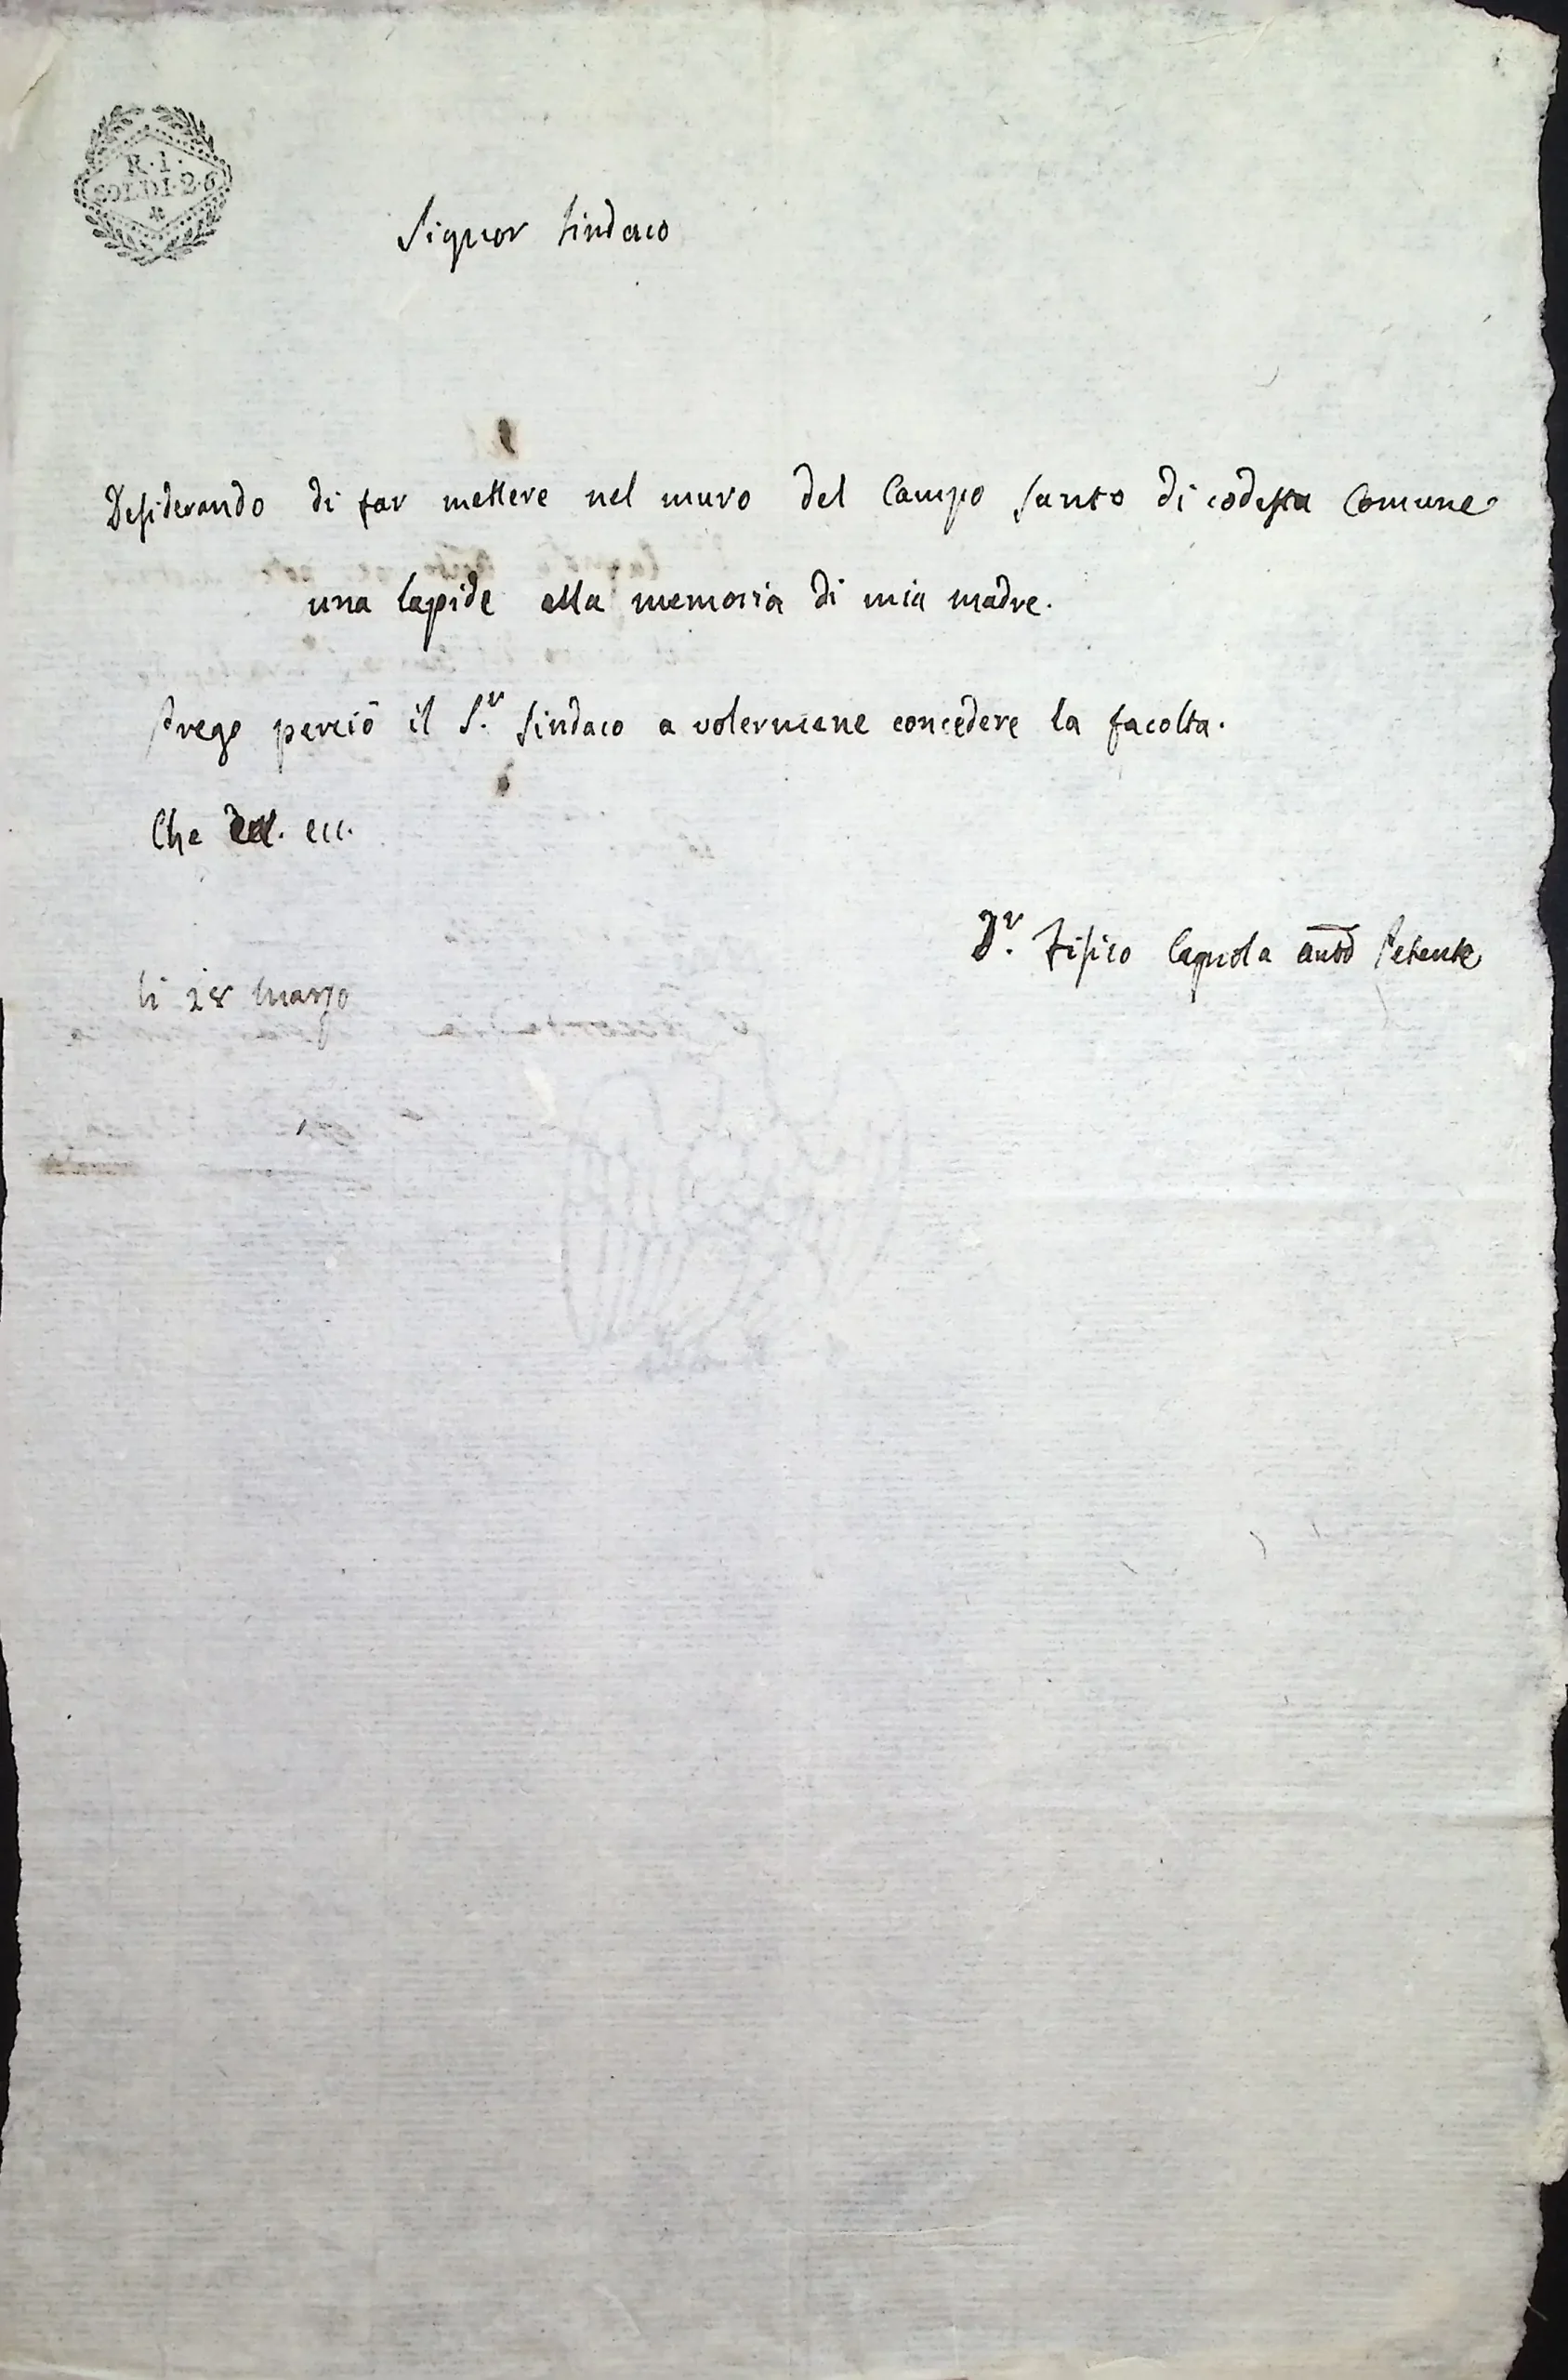 R.I.
SOLDI.2.6
Signor Sindaco
Desiderando di far mettere nel muro del Campo Santo di codesta Comune
una lapide alla memoria di mia madre.
Prego perciò il S.r Sindaco a volermene concedere la facolta.
Che ecc.
D.r Fisico Cagnola Petente
li 28 Marzo